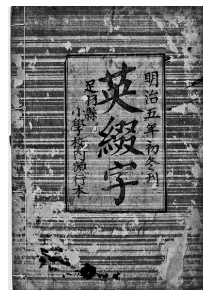 明治五年初冬刊
英綴字
足羽縣
小學校門藏行本